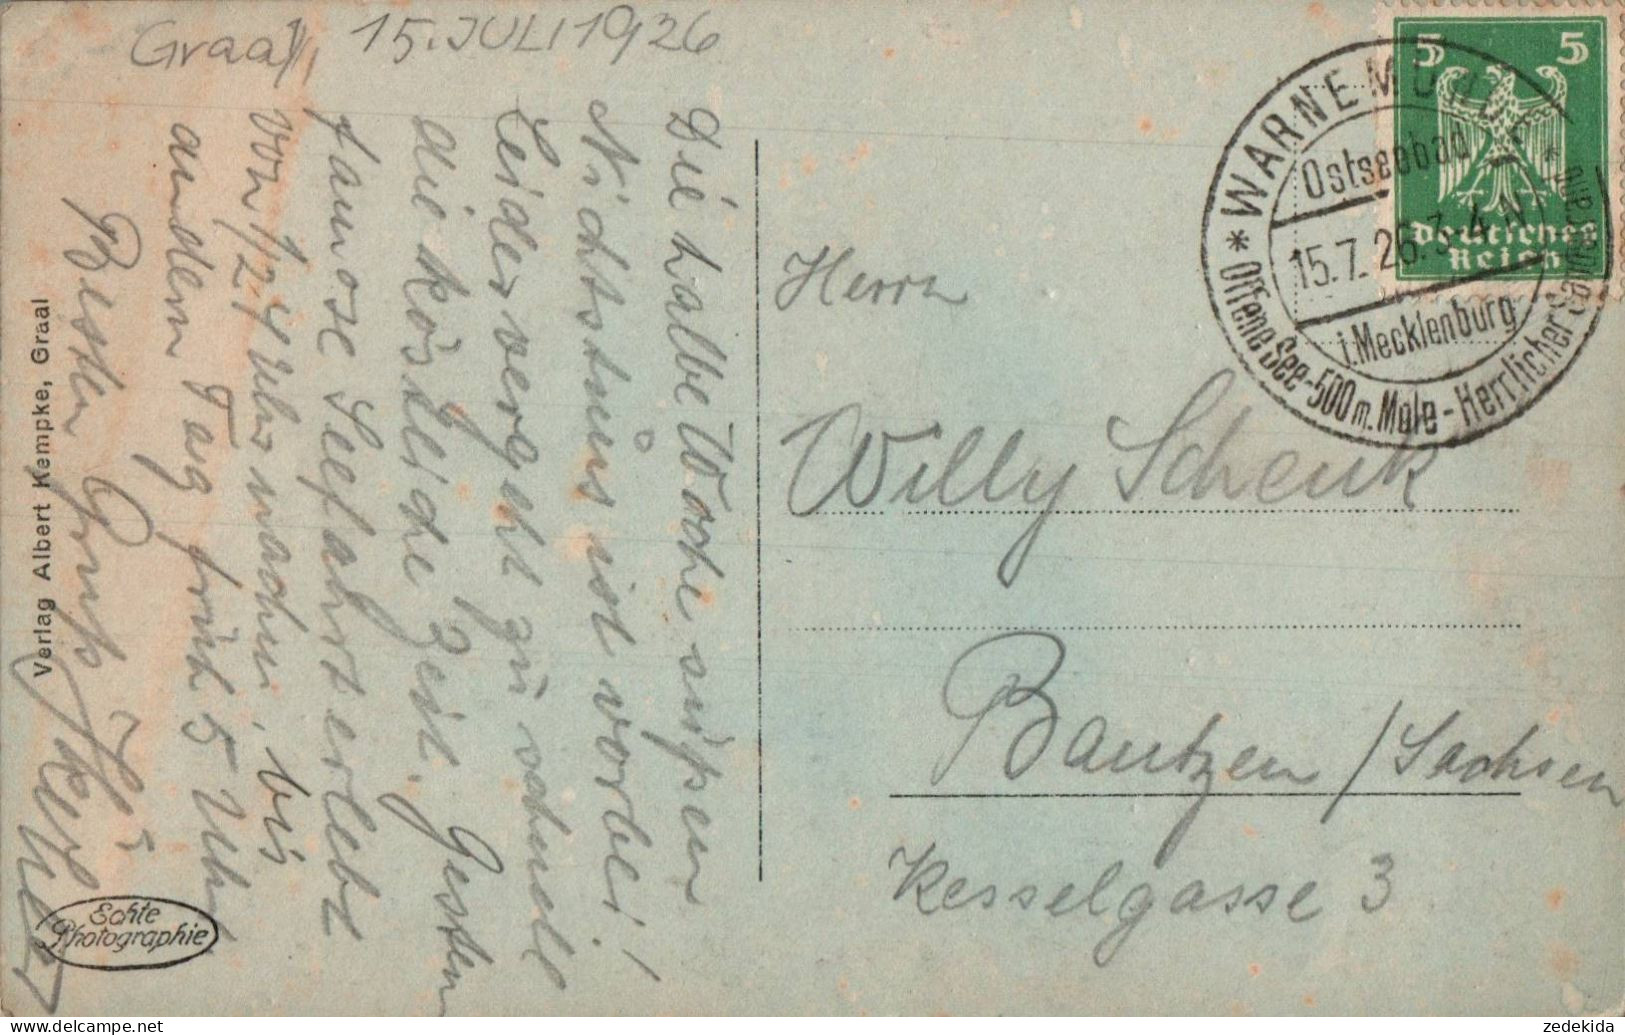 Graal, 15. JULI 1926
Die halbe Woche süßen
Nichtstuns ist vorbei!
Leider vergeht zu schnell
die köstliche Zeit. Gestern
famose Seefahrt erlebt
von 1/2 4 Uhr nachm, bis
andern Tag früh 5 Uhr
Besten Gruß Ihr
Verlag Albert Kempke, Graal
Echte
Photographie
Herrn
Willy Schenk
Bautzen / Sachsen
Kesselgasse 3
5 5
Deutsches
Reich
* WARNEMÜNDE *
Ostseebad
15.7.26.3-4 N
i. Mecklenburg
Offene See-500 m. Mole - Herrlicher
zedekida